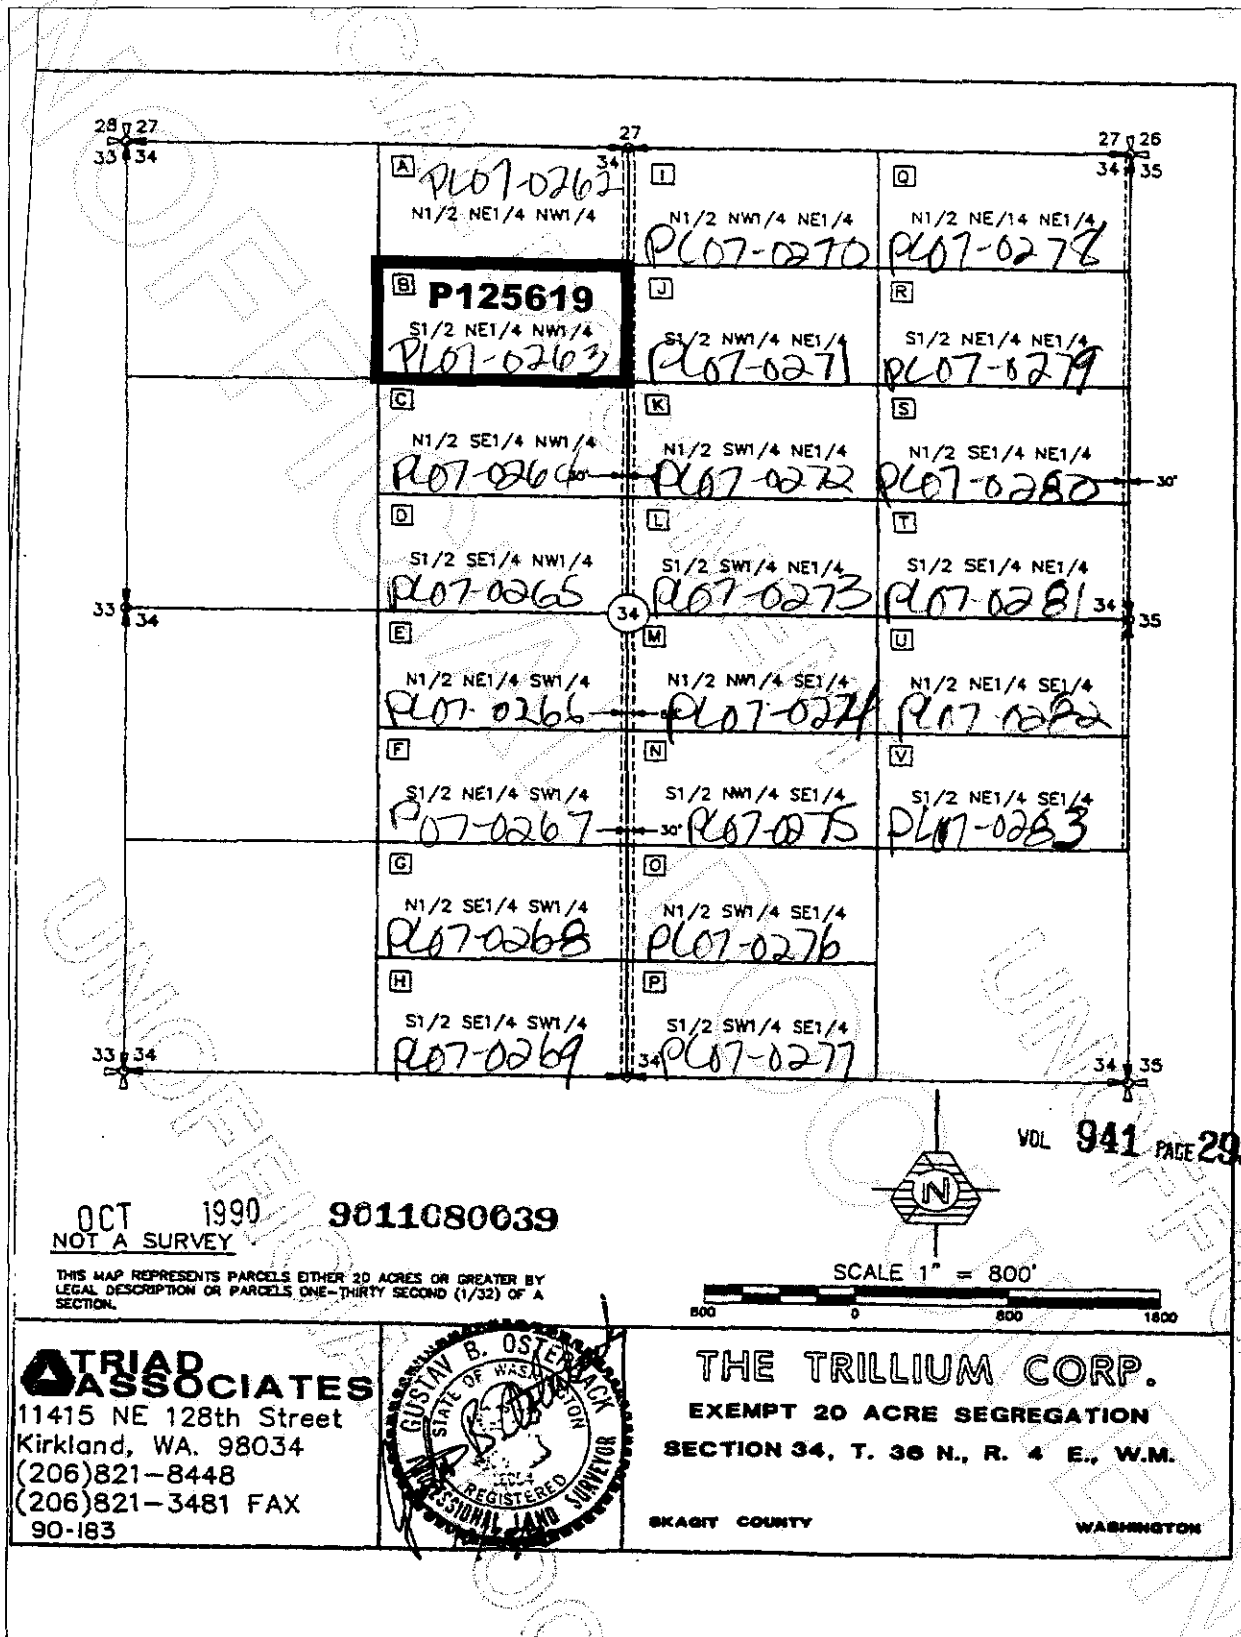 28 27
33 34
27
34
27 26
34 35
A PL07-0262
N1/2 NE1/4 NW1/4
I
N1/2 NW1/4 NE1/4
PL07-0270
Q
N1/2 NE/14 NE1/4
PL07-0278
B P125619
S1/2 NE1/4 NW1/4
PL07-0263
J
S1/2 NW1/4 NE1/4
PL07-0271
R
S1/2 NE1/4 NE1/4
PL07-0279
C
N1/2 SE1/4 NW1/4
PL07-0264
K
N1/2 SW1/4 NE1/4
PL07-0272
S
N1/2 SE1/4 NE1/4
PL07-0280
30'
D
S1/2 SE1/4 NW1/4
PL07-0265
L
S1/2 SW1/4 NE1/4
PL07-0273
T
S1/2 SE1/4 NE1/4
PL07-0281
33 34
34
34 35
E
N1/2 NE1/4 SW1/4
PL07-0266
M
N1/2 NW1/4 SE1/4
PL07-0274
U
N1/2 NE1/4 SE1/4
PL07-0282
F
S1/2 NE1/4 SW1/4
P07-0267
30'
N
S1/2 NW1/4 SE1/4
PL07-0275
V
S1/2 NE1/4 SE1/4
PL07-0283
G
N1/2 SE1/4 SW1/4
PL07-0268
O
N1/2 SW1/4 SE1/4
PL07-0276
H
S1/2 SE1/4 SW1/4
PL07-0269
P
S1/2 SW1/4 SE1/4
PL07-0277
33 34
34
34 35
VOL 941 PAGE 29
N
OCT 1990 9011080039
NOT A SURVEY
THIS MAP REPRESENTS PARCELS EITHER 20 ACRES OR GREATER BY
LEGAL DESCRIPTION OR PARCELS ONE-THIRTY SECOND (1/32) OF A
SECTION.
SCALE 1" = 800'
800 0 800 1600
TRIAD
ASSOCIATES
11415 NE 128th Street
Kirkland, WA. 98034
(206)821-8448
(206)821-3481 FAX
90-183
GUSTAV B. OSTERBACK
STATE OF WASHINGTON
REGISTERED
PROFESSIONAL LAND SURVEYOR
THE TRILLIUM CORP.
EXEMPT 20 ACRE SEGREGATION
SECTION 34, T. 36 N., R. 4 E., W.M.
SKAGIT COUNTY WASHINGTON
UNOFFICIAL DOCUMENT